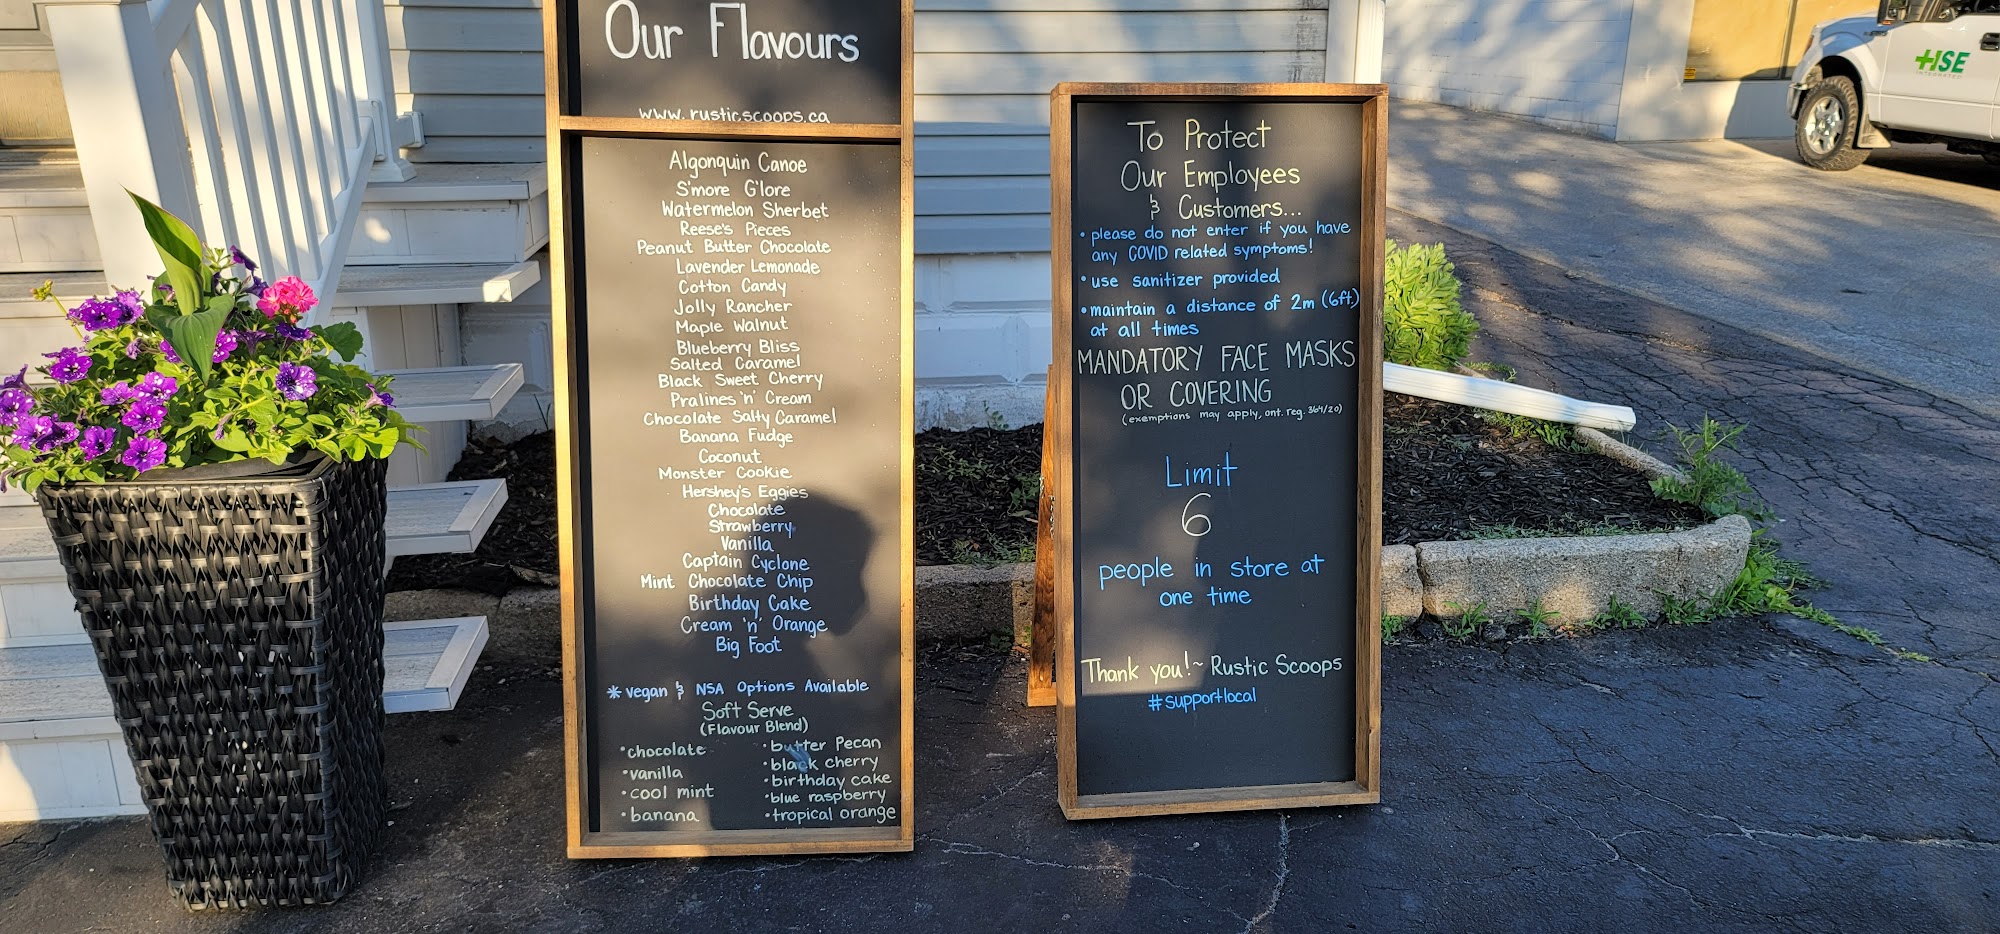 Our Flavours
www.rusticscoops.ca
Algonquin Canoe
S'more G'lore
Watermelon Sherbet
Reese's Pieces
Peanut Butter Chocolate
Lavender Lemonade
Cotton Candy
Jolly Rancher
Maple Walnut
Blueberry Bliss
Salted Caramel
Black Sweet Cherry
Pralines 'n' Cream
Chocolate Salty Caramel
Banana Fudge
Coconut
Monster Cookie
Hershey's Eggies
Chocolate
Strawberry
Vanilla
Captain Cyclone
Mint Chocolate Chip
Birthday Cake
Cream 'n' Orange
Big Foot
* vegan & NSA Options Available
Soft Serve
(Flavour Blend)
• chocolate
• vanilla
• cool mint
• banana
• butter Pecan
• black cherry
• birthday cake
• blue raspberry
• tropical orange
To Protect
Our Employees
& Customers...
• please do not enter if you have
any COVID related symptoms!
• use sanitizer provided
• maintain a distance of 2m (6ft)
at all times
MANDATORY FACE MASKS
OR COVERING
(exemptions may apply, ont. reg. 364/20)
Limit
6
people in store at
one time
Thank you! ~ Rustic Scoops
#supportlocal
HSE
INTEGRATED